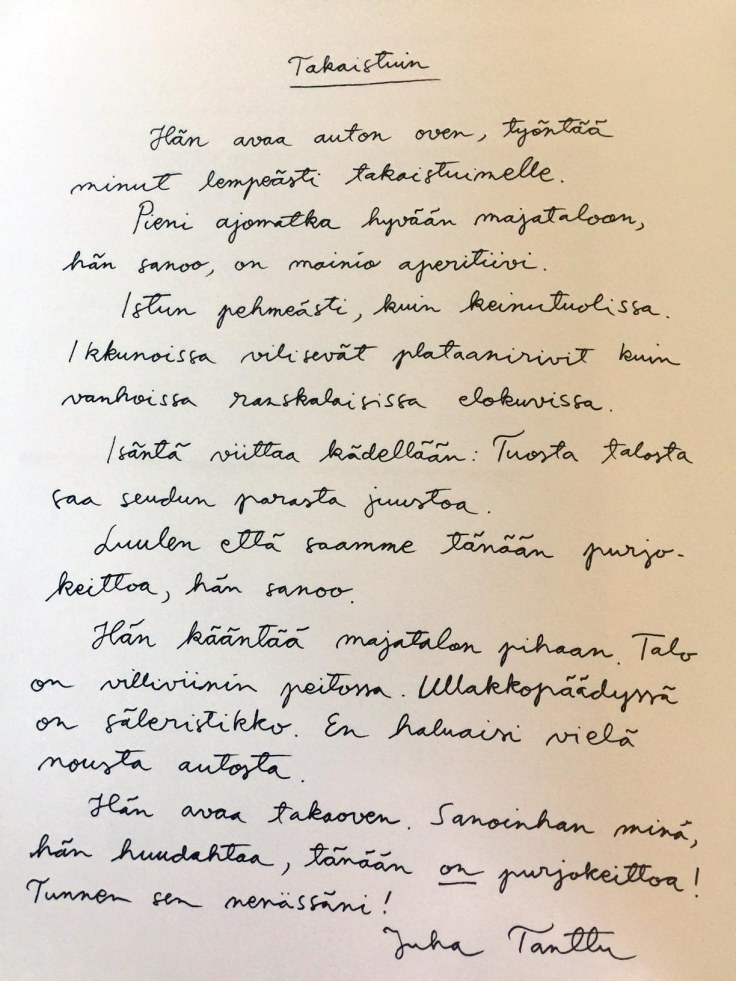 Takaistuin
Hän avaa auton oven, työntää
minut lempeästi takaistuimelle.
Pieni ajomatka hyvään majataloon,
hän sanoo, on mainio aperitiivi.
Istun pehmeästi, kuin keinutuolissa.
Ikkunoissa vilisevät plataanirivit kuin
vanhoissa ranskalaisissa elokuvissa.
Isäntä viittaa kädellään: Tuosta talosta
saa seudun parasta juustoa.
Luulen että saamme tänään purjo-
keittoa, hän sanoo.
Hän kääntää majatalon pihaan. Talo
on villiviinin peitossa. Ullakkopäädyssä
on säleristikko. En haluaisi vielä
nousta autosta.
Hän avaa takaoven. Sanoinhan minä,
hän huudahtaa, tänään on purjokeittoa!
Tunnen sen nenässäni!
Juha Tanttu